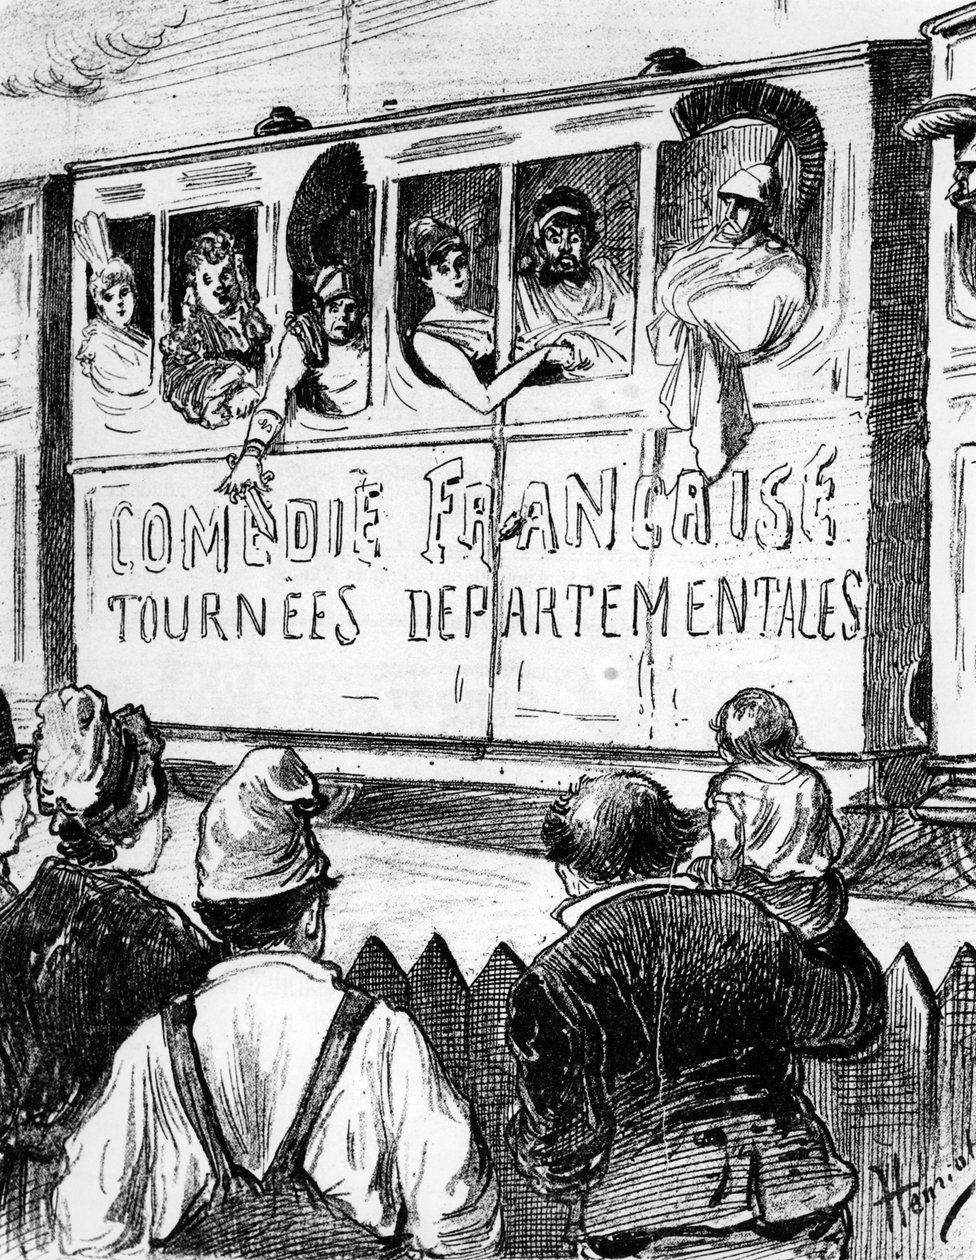 COMÉDIE FRANÇAISE
TOURNÉES DEPARTEMENTALES
Henriot